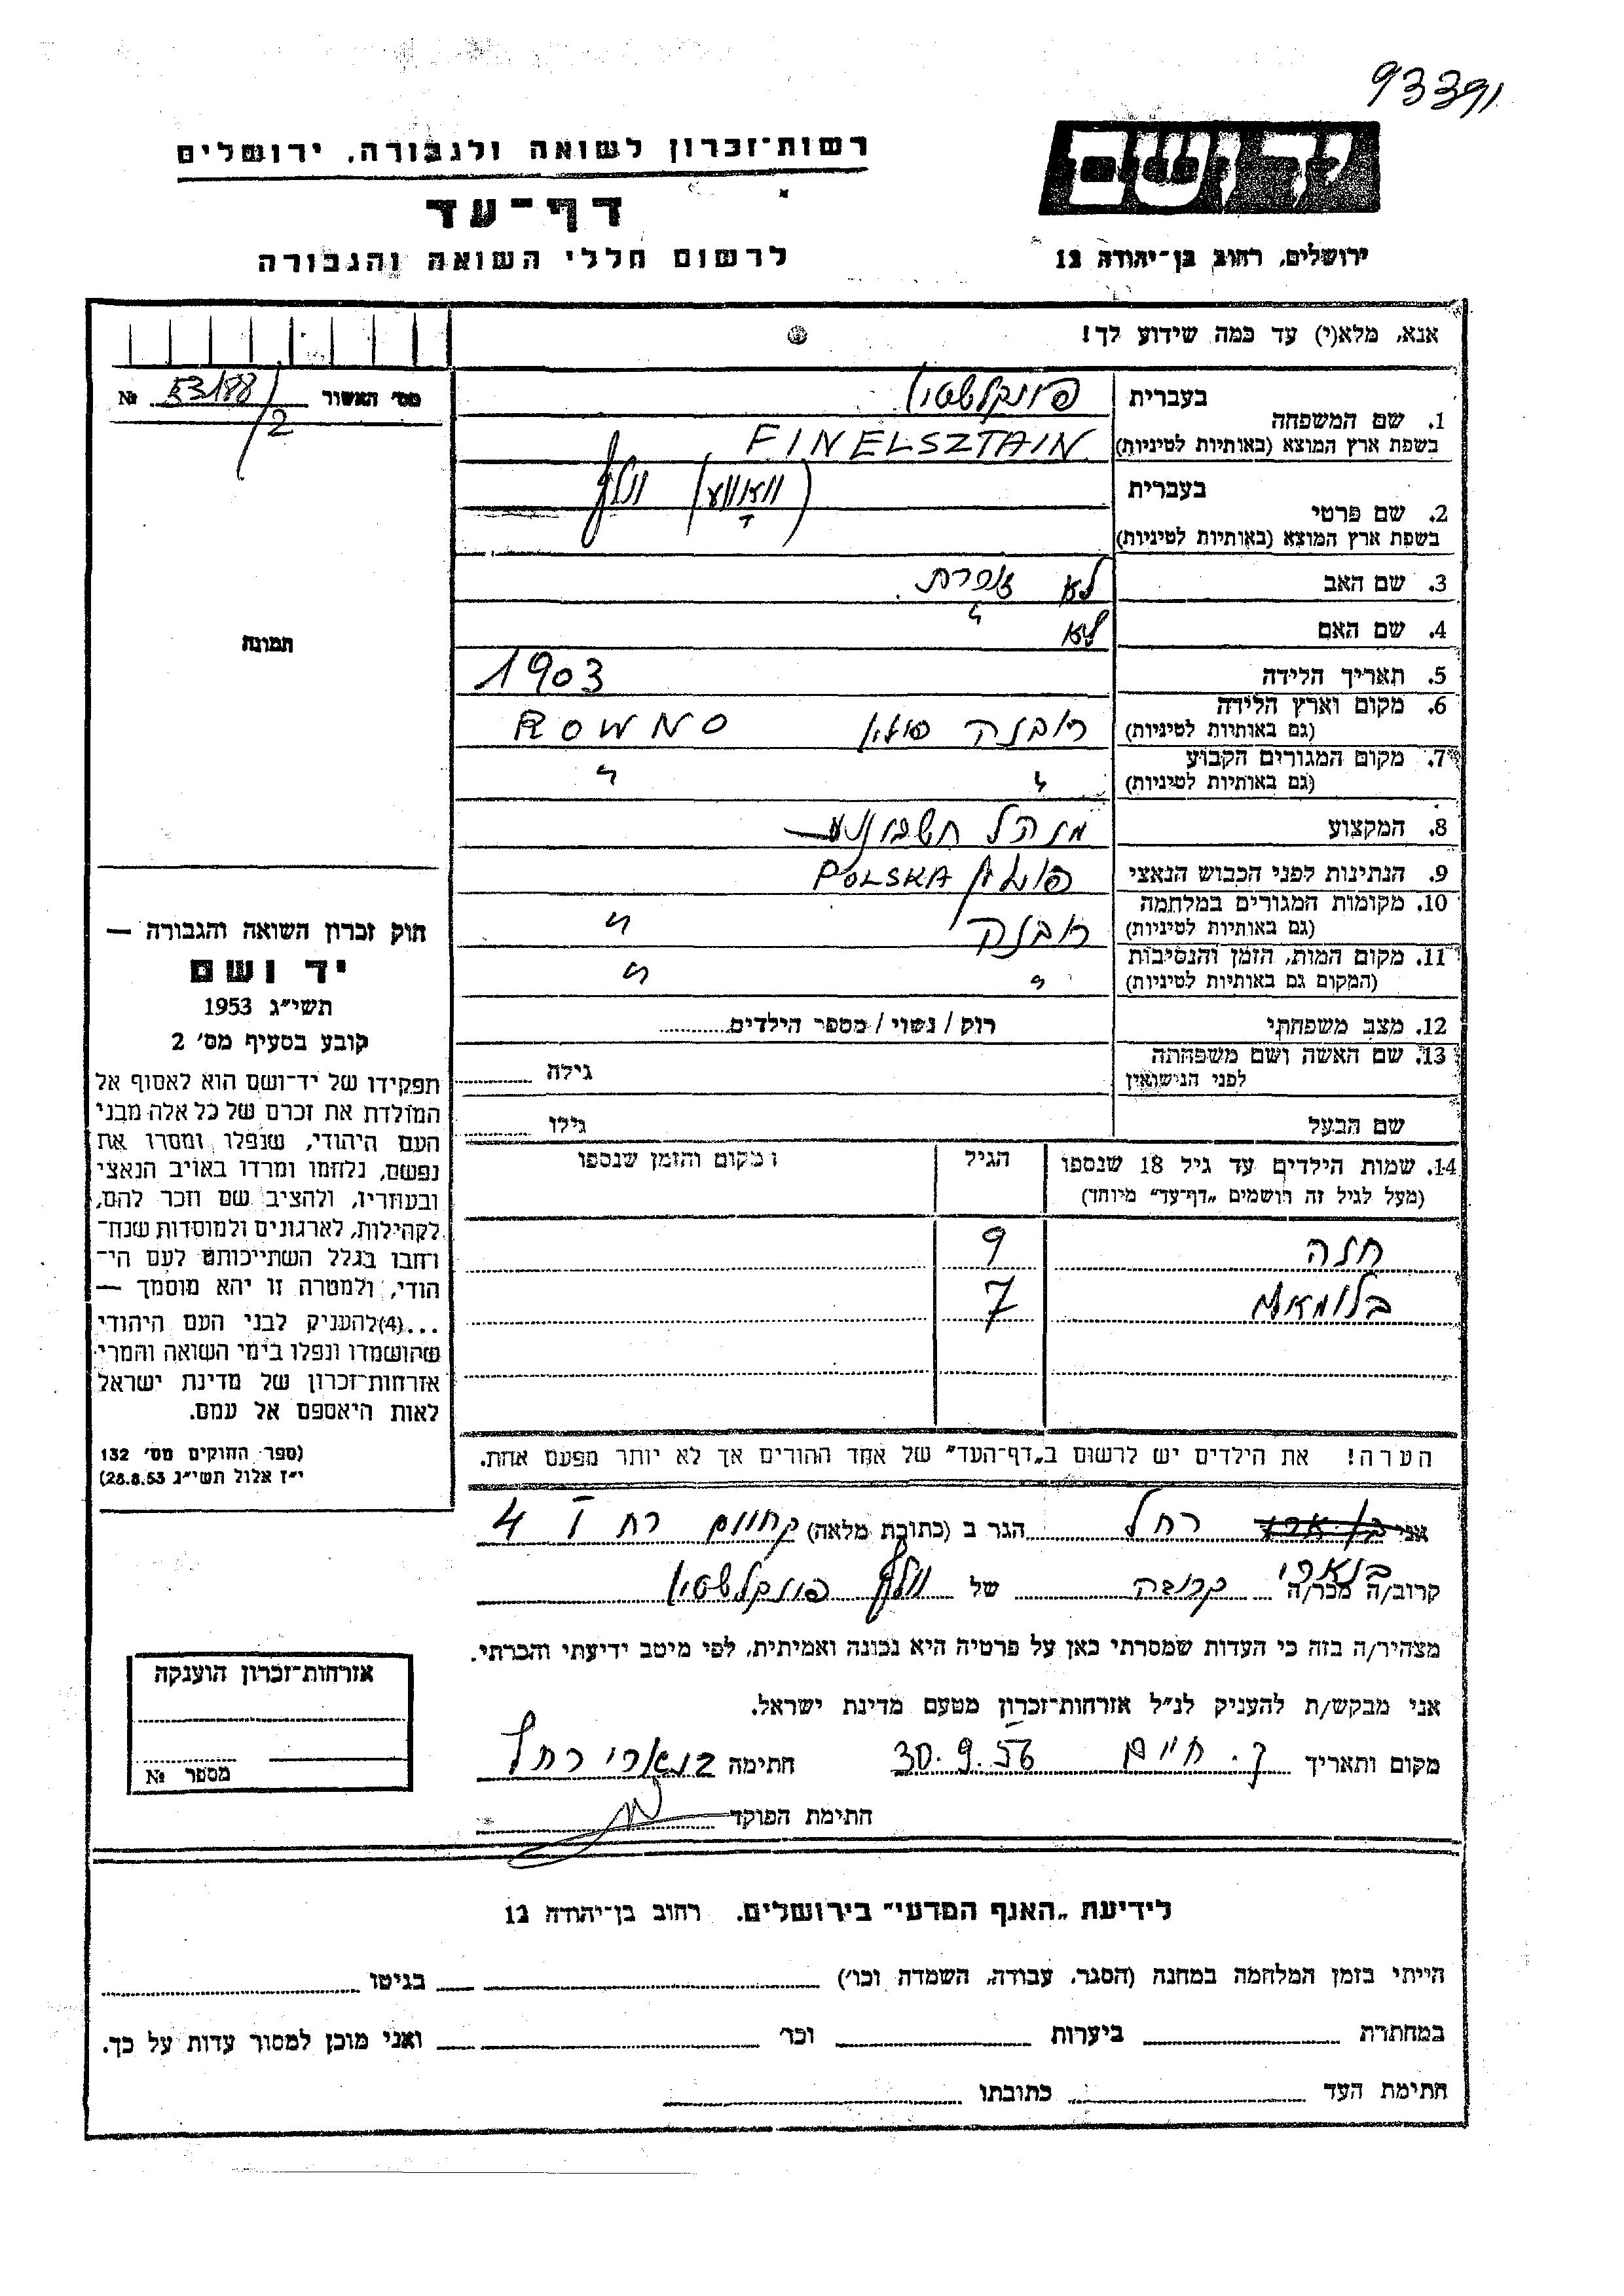 93391
יד ושם
רשות־זכרון לשואה ולגבורה, ירושלים
דף־עד
לרשום חללי השואה והגבורה
ירושלים, רחוב בן־יהודה 12
אנא, מלא(י) עד כמה שידוע לך!
מס׳ האשור № 53188/2
תמונה
1. שם המשפחה
בעברית פינקלשטיין
בשפת ארץ המוצא (באותיות לטיניות) FINELSZTAIN
2. שם פרטי
בעברית וולף (וואווע)
בשפת ארץ המוצא (באותיות לטיניות)
3. שם האב לא זוכרת.
4. שם האם לא "
5. תאריך הלידה 1903
6. מקום וארץ הלידה
(גם באותיות לטיניות) רובנה פולין ROWNO
7. מקום המגורים הקבוע
(גם באותיות לטיניות) " "
8. המקצוע מנהל חשבונות
9. הנתינות לפני הכבוש הנאצי פולין POLSKA
10. מקומות המגורים במלחמה
(גם באותיות לטיניות) רובנה "
11. מקום המות, הזמן והנסיבות
(המקום גם באותיות לטיניות) " "
12. מצב משפחתי רוק / נשוי / מספר הילדים
13. שם האשה ושם משפחתה
לפני הנישואין גילה
שם הבעל גילו
14. שמות הילדים עד גיל 18 שנספו
(מעל לגיל זה רושמים „דף־עד” מיוחד)
הגיל
מקום והזמן שנספו
חנה 9
7
הערה! את הילדים יש לרשום ב„דף־העד” של אחד ההורים אך לא יותר מפעם אחת.
חוק זכרון השואה והגבורה —
יד ושם
תשי״ג 1953
קובע בסעיף מס׳ 2
תפקידו של יד־ושם הוא לאסוף אל
המולדת את זכרם של כל אלה מבני
העם היהודי, שנפלו ומסרו את
נפשם, נלחמו ומרדו באויב הנאצי
ובעוזריו, ולהציב שם וזכר להם,
לקהילות, לארגונים ולמוסדות שנח־
רחבו בגלל השתייכותם לעם הי־
הודי, ולמטרה זו יהא מוסמך —
...(4)להעניק לבני העם היהודי
שהושמדו ונפלו בימי השואה והמרי
אזרחות־זכרון של מדינת ישראל
לאות היאספם אל עמם.
(ספר החוקים מס׳ 132
י״ז אלול תשי״ג 28.8.53)
אני רחל הגר ב (כתובת מלאה) ק חיים רח 4
בוארי
קרוב/ה מכר/ה קרובה של וולף פינקלשטיין
מצהיר/ה בזה כי העדות שמסרתי כאן על פרטיה היא נכונה ואמיתית, לפי מיטב ידיעתי והכרתי.
אני מבקש/ת להעניק לנ״ל אזרחות־זכרון מטעם מדינת ישראל.
מקום ותאריך ק. חיים 30.9.56 חתימה בוארי רחל
חתימת הפוקד
אזרחות־זכרון הוענקה
מספר №
לידיעת „האגף המדעי” בירושלים, רחוב בן־יהודה 12
הייתי בזמן המלחמה במחנה (הסגר, עבודה, השמדה וכו׳) בגיטו
במחתרת ביערות וכו׳ ואני מוכן למסור עדות על כך.
חתימת העד כתובתו